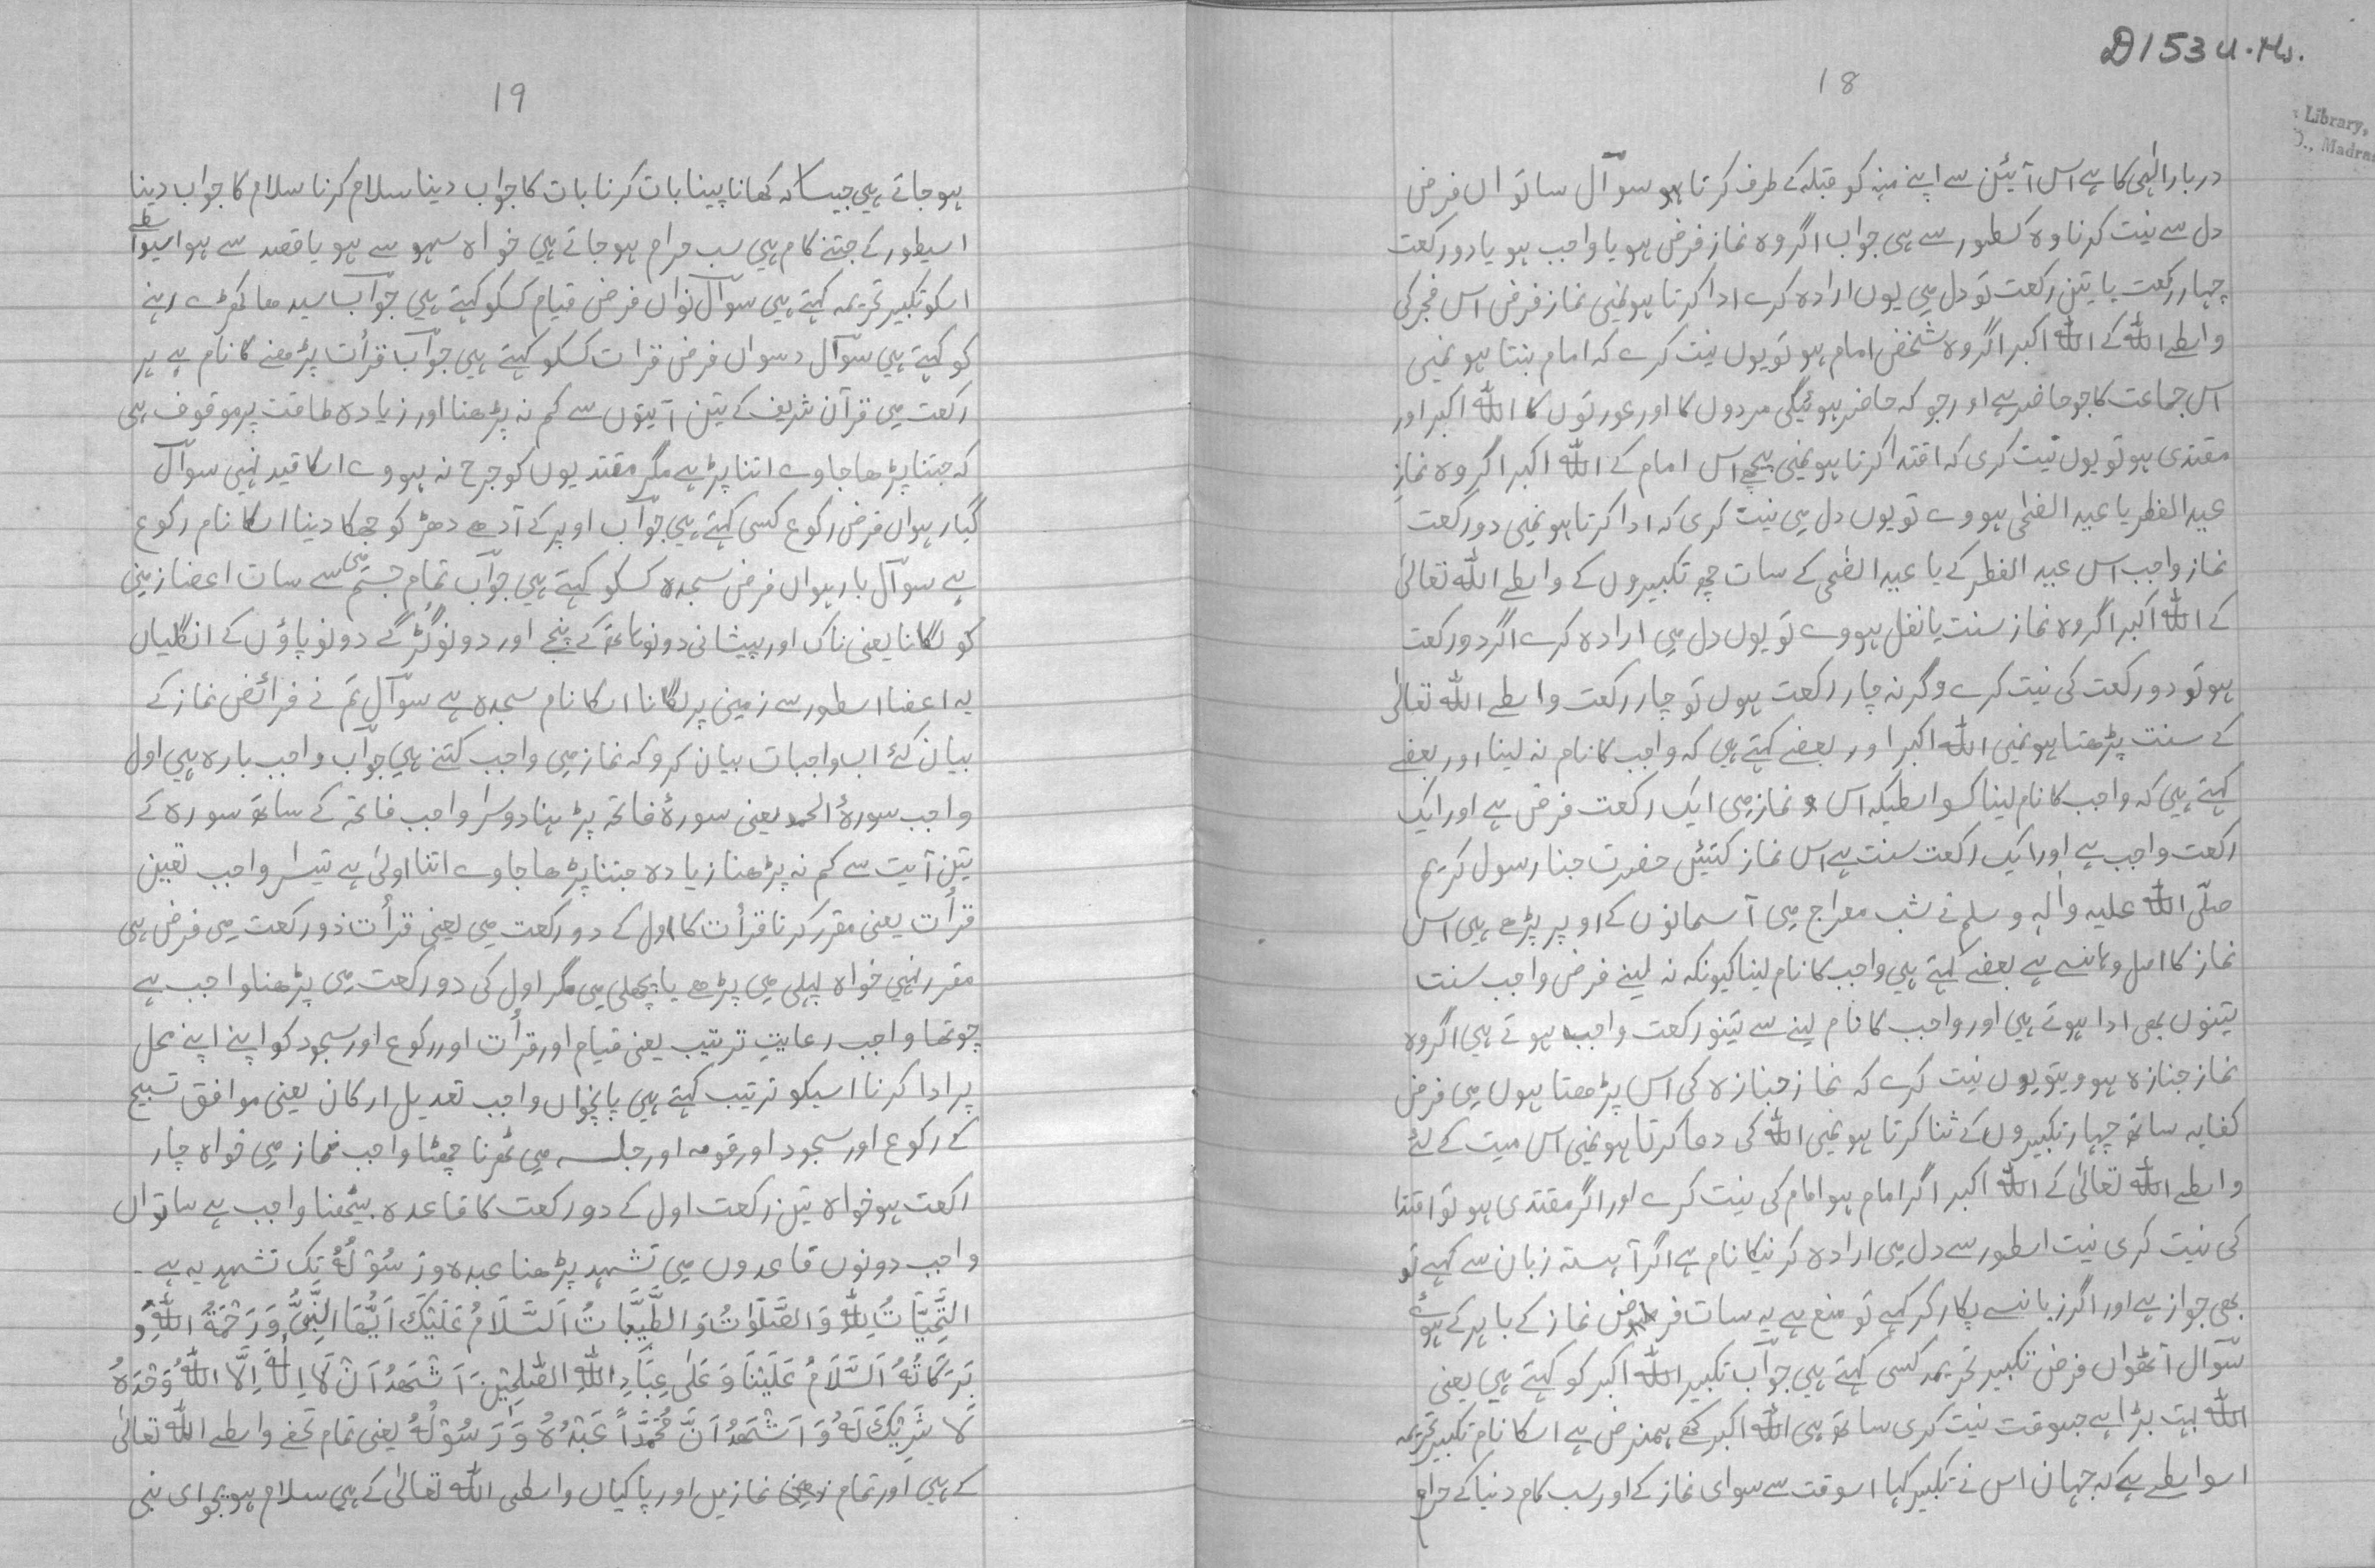 D153 U.Ms.
18
Library,
O., Madras
دربار الٰہی کا ہے اس آئین سے اپنے منہ کو قبلہ کے طرف کرتا ہو سوآل ساتواں فرض
دل سے نیت کرنا وہ کسطور سے ہی جواب اگر وہ نماز فرض ہو یا واجب ہو یا دو رکعت
چہار رکعت یا تین رکعت تو دل میں یوں ارادہ کرے ادا کرتا ہو نمیں نماز فرض اس فجر کی
واسطے اللہ کے اللہ اکبر اگر وہ شخص امام ہو تو یوں نیت کرے کہ امام بنتا ہو نمیں
اس جماعت کا جو حاضر ہے اور جو کہ حاضر ہوئیگی مردوں کا اور عورتوں کا اللہ اکبر اور
مقتدی ہو تو یوں نیت کری کہ اقتدا کرتا ہو نمیں پیچھے اس امام کے اللہ اکبر اگر وہ نماز
عید الفطر یا عید الضحٰی ہووے تو یوں دل میں نیت کری کہ ادا کرتا ہو نمیں دو رکعت
نماز واجب اس عید الفطر کے یا عید الضحٰی کے سات چھ تکبیروں کے واسطے اللہ تعالیٰ
کے اللہ اکبر اگر وہ نماز سنت یا نفل ہووے تو یوں دل میں ارادہ کرے اگر دو رکعت
ہو تو دو رکعت کی نیت کرے وگرنہ چار رکعت ہوں تو چار رکعت واسطے اللہ تعالیٰ
کے سنت پڑھتا ہو نمیں اللہ اکبر اور بعضے کہتے ہیں کہ واجب کا نام نہ لینا اور بعضے
کہتے ہیں کہ واجب کا نام لینا کسواسطیکہ اس نماز میں ایک رکعت فرض ہے اور ایک
رکعت واجب ہے اور ایک رکعت سنت ہے اس نماز کتیئں حضرت جنا رسول کریم
صلّی اللہ علیہ واٰلہ وسلم نے شب معراج میں آسمانوں کے اوپر پڑھے ہیں اس
نماز کا اصل وہانسے ہے بعضے کہتے ہیں واجب کا نام لینا کیونکہ نہ لینے فرض واجب سنت
تینوں بھی ادا ہوتے ہیں اور واجب کا نام لینے سے تینو رکعت واجب ہوتے ہیں اگر وہ
نماز جنازہ ہوویتو یوں نیت کرے کہ نماز جنازہ کی اس پڑھتا ہوں میں فرض
کفایہ ساتھ چہار تکبیروں کے ثنا کرتا ہو نمیں اللہ کی دعا کرتا ہو نمیں اس میت کے لئے
واسطے اللہ تعالیٰ کے اللہ اکبر اگر امام ہو امام کی نیت کرے اور اگر مقتدی ہو تو اقتدا
کی نیت کری نیت اسطور سے دل میں ارادہ کرنیکا نام ہے اگر آہستہ زبان سے کہے تو
بھی جواز ہے اور اگر زبانسے پکار کر کہے تو منع ہے یہ سات فرض نماز کے باہر کے ہوئے
سوّال آٹھواں فرض تکبیر تحریمہ کسی کہتے ہیں جوآب تکبیر اللہ اکبر کو کہتے ہیں یعنی
اللہ بہت بڑا ہے جسوقت نیت کری ساتھ ہی اللہ اکبر کہے ہمنرض ہے اسکا نام تکبیر تحریمہ
اسواسطے ہے کہ جہان اس نے تکبیر کہا اسوقت سے سوای نماز کے اور سب کام دنیا کے حرام
19
ہو جاتے ہیں جیسا کہ کھانا پینا بات کرنا بات کا جواب دینا سلام کرنا سلام کا جواب دینا
اسیطور کے جتنے کام ہیں سب حرام ہو جاتے ہیں خواہ سہو سے ہو یا قصد سے ہو اسیواسطے
اسکو تکبیر تحریمہ کہتے ہیں سوآل نواں فرض قیام کسکو کہتے ہیں جوآب سیدھا کھڑے رہنے
کو کہتے ہیں سوّال دسواں فرض قرات کسکو کہتے ہیں جوآب قرأت پڑھنے کا نام ہے ہر
رکعت میں قرآن شریف کے تین آیتوں سے کم نہ پڑھنا اور زیادہ طاقت پر موقوف ہی
کہ جتنا پڑھا جاوے اتنا پڑہے مگر مقتدیوں کو حرج نہ ہووے اسکا قید نہیں سوآل
گیارہواں فرض رکوع کسی کہتے ہیں جوآب اوپر کے آدھے دھڑ کو جھکا دینا اسکا نام رکوع
ہے سوآل بارہواں فرض سجدہ کسکو کہتے ہیں جوآب تمام جسم میں سے سات اعضا زمین
کو لگانا یعنی ناک اور پیشانی دونو ہاتھ کے پنجے اور دونو گڑگے دونو پاؤں کے انگلیاں
یہ اعضا اسطور سے زمین پر لگانا اسکا نام سجدہ ہے سوآل تم نے فرائض نماز کے
بیان کئے اب واجبات بیان کرو کہ نماز میں واجب کتنے ہیں جوآب واجب بارہ ہیں اول
واجب سورۂ الحمد یعنی سورۂ فاتحہ پڑہنا دوسرا واجب فاتحہ کے ساتھ سورہ کے
تین آیت سے کم نہ پڑھنا زیادہ جتنا پڑھا جاوے اتنا اولیٰ ہے تیسرا واجب تعین
قرأت یعنی مقرر کرنا قرأت کا اول کے دو رکعت میں یعنی قرأت دو رکعت میں فرض ہی
مقرر نہیں خواہ پہلی میں پڑھے یا پچھلی میں مگر اول کی دو رکعت میں پڑھنا واجب ہے
چوتھا واجب رعایتِ ترتیب یعنی قیام اور قرأت اور رکوع اور سجود کو اپنے اپنے محل
پر ادا کرنا اسیکو ترتیب کہتے ہیں پانچواں واجب تعدیل ارکان یعنی موافق تسبیح
کے رکوع اور سجود اور قومہ اور جلسہ میں ٹھرنا چھٹا واجب نماز میں خواہ چار
رکعت ہو خواہ تین رکعت اول کے دو رکعت کا قاعدہ بیٹھنا واجب ہے ساتواں
واجب دونوں قاعدوں میں تشہد پڑھنا عبدہ وَرَسُوْلُهٗ تک تشہد یہ ہے -
اَلتَّحِيَّاتُ لِلّٰهِ وَالصَّلَوٰتُ وَالطَّيِّبَاتُ اَلسَّلَامُ عَلَيْكَ اَيُّهَا النَّبِىُّ وَرَحْمَةُ اللّٰهِ وَ
بَرَكَاتُهٗ اَلسَّلَامُ عَلَيْنَا وَعَلٰى عِبَادِ اللّٰهِ الصّٰلِحِيْنَ اَشْهَدُ اَنْ لَا اِلٰهَ اِلَّا اللّٰهُ وَحْدَهٗ
لَا شَرِيْكَ لَهٗ وَاَشْهَدُ اَنَّ مُحَمَّدًا عَبْدُهٗ وَرَسُوْلُهٗ یعنی تمام تحفے واسطے اللہ تعالیٰ
کے ہیں اور تمام نمازیں اور پاکیاں واسطی اللہ تعالیٰ کے ہیں سلام ہو جیو ای نبی